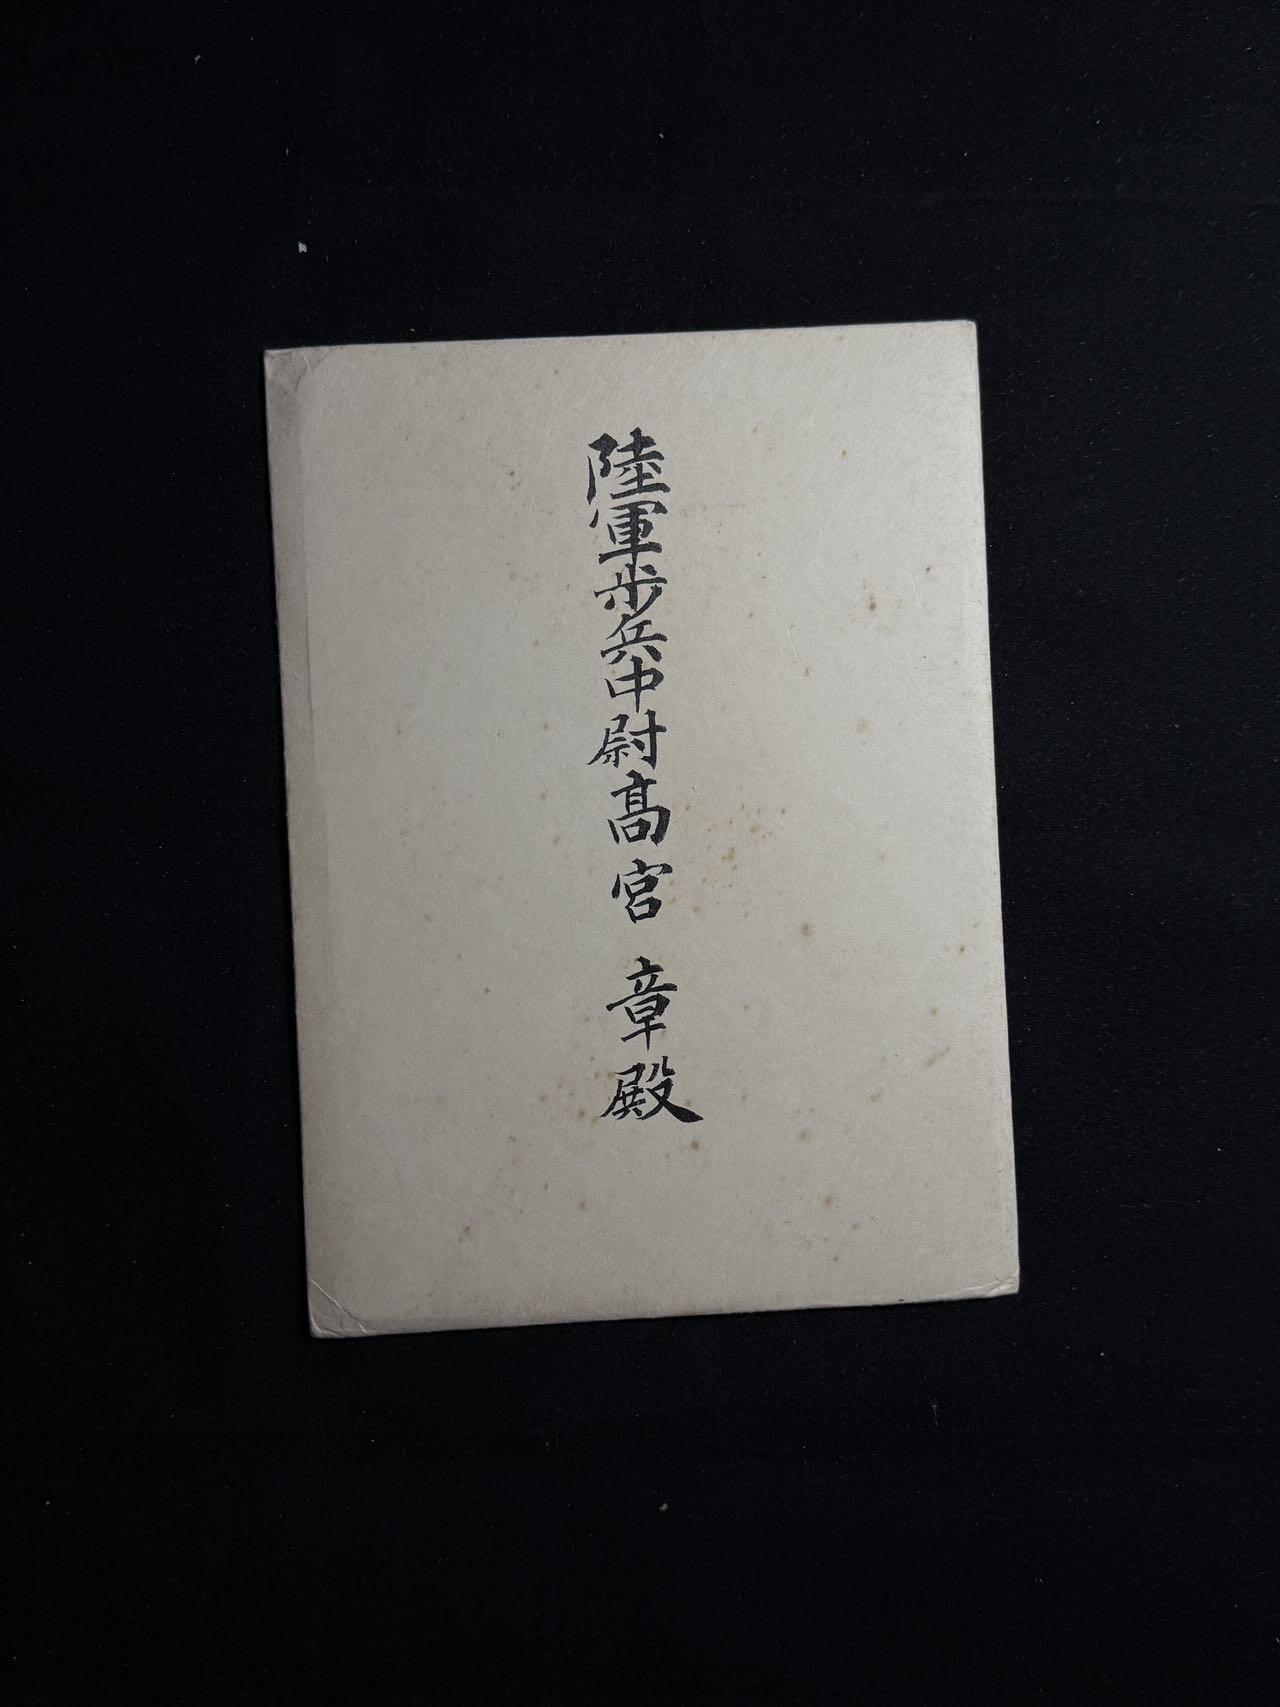 陸軍歩兵中尉髙宮 章殿